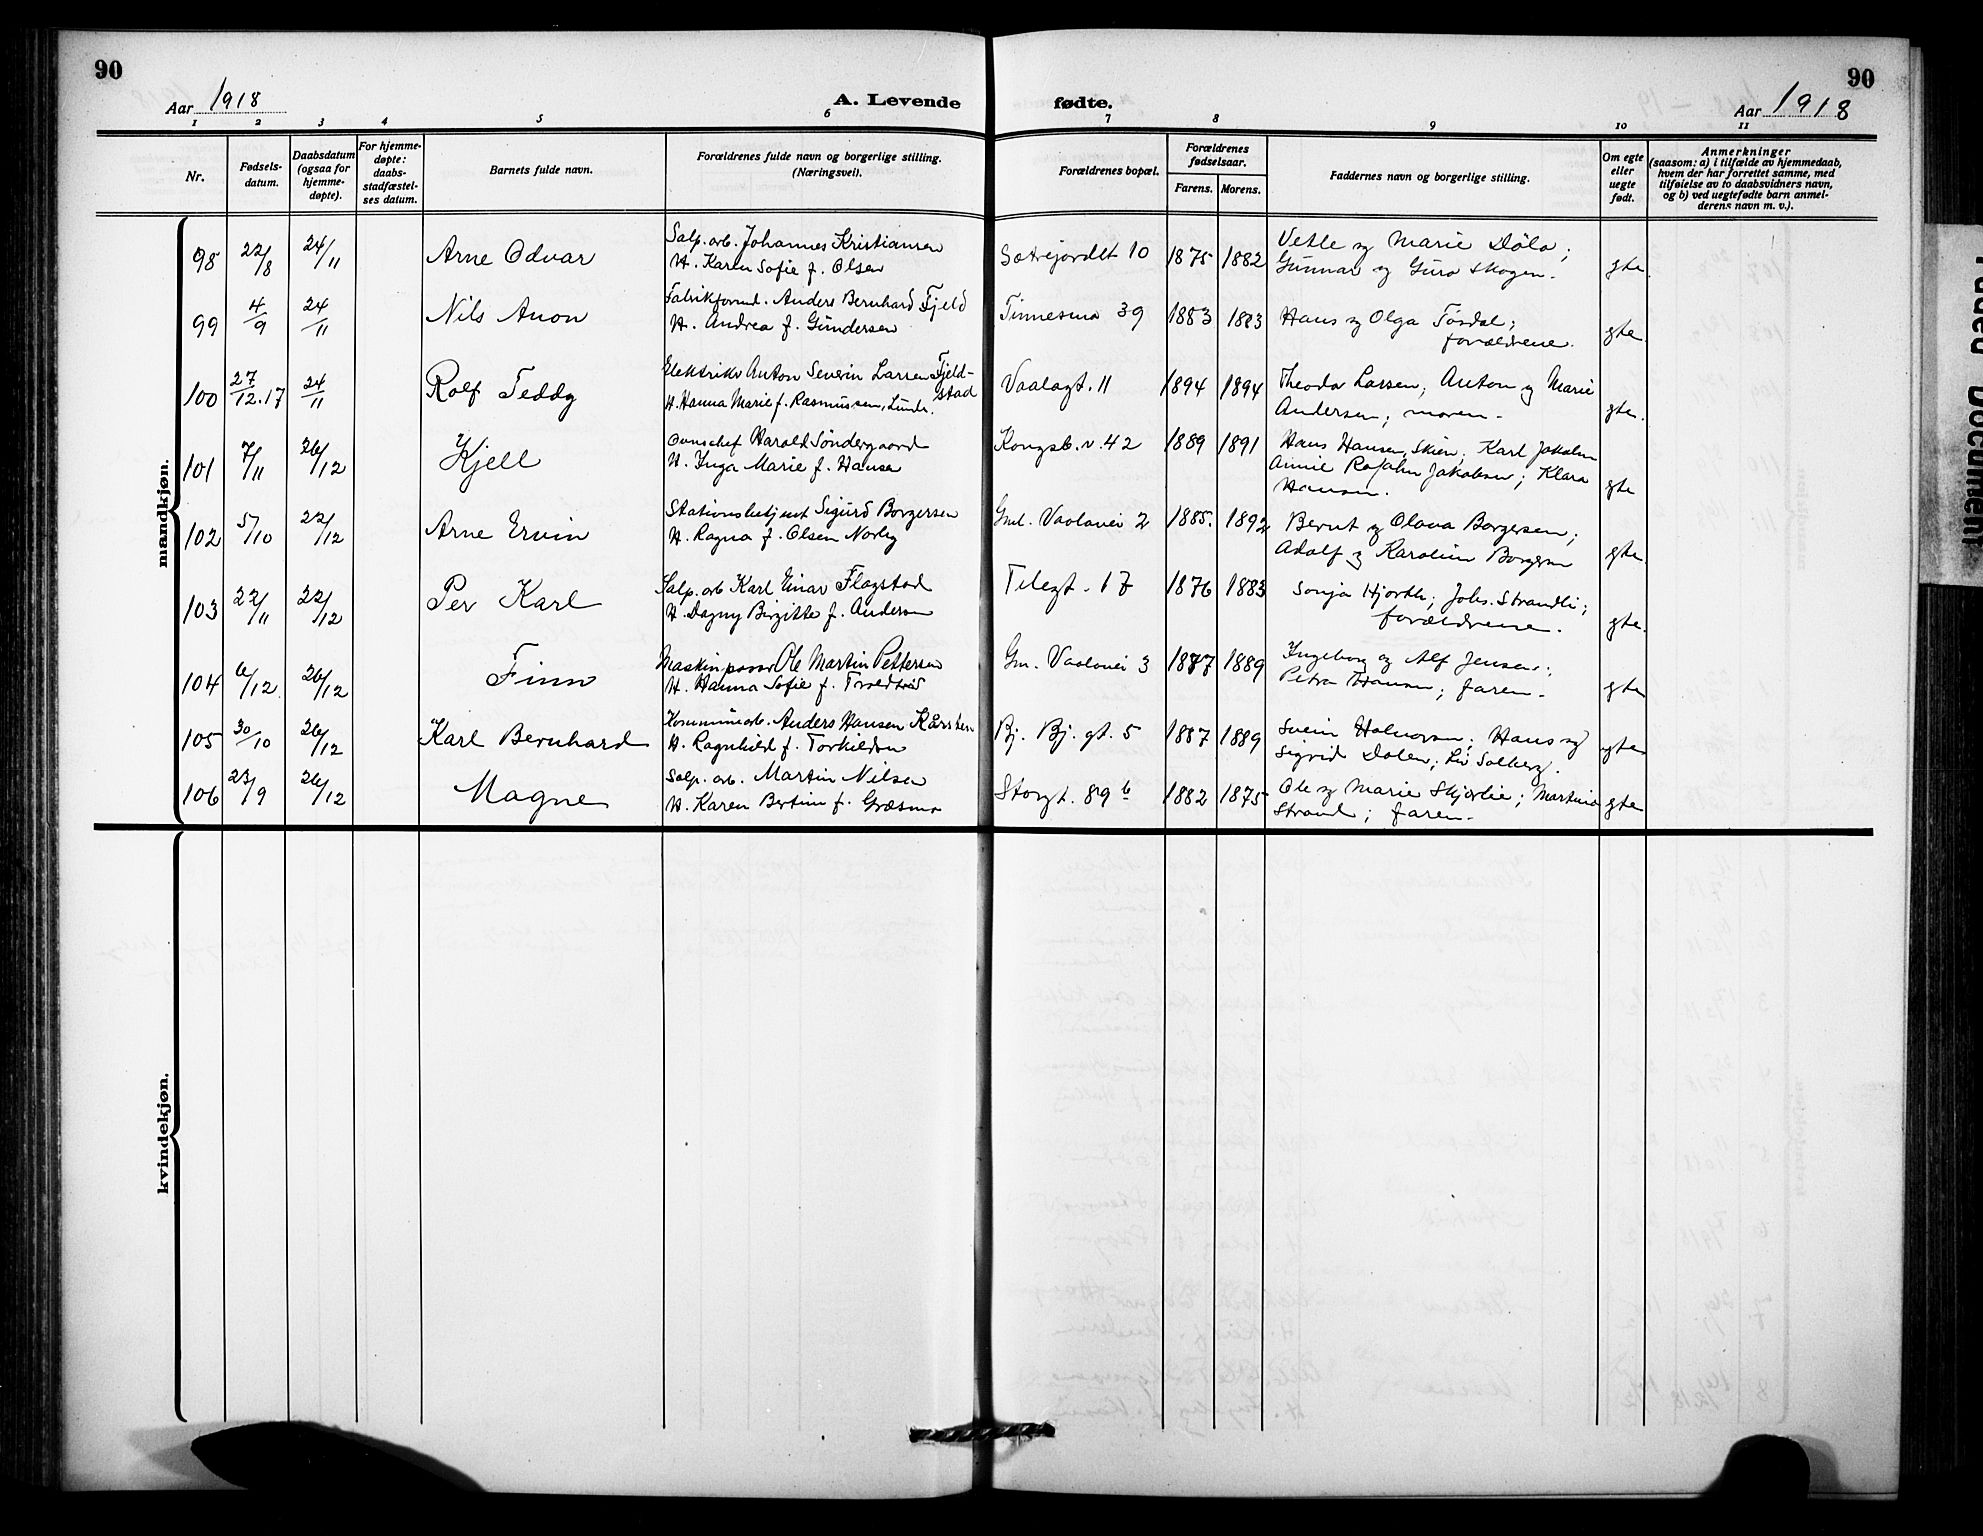 90
90
Aar 1918
A. Levende fødte.
Aar 1918
1 2 3 4 5 6 7 8 9 10 11
Nr.
Fødsels-
datum.
Daabsdatum
(ogsaa for
hjemme-
døpte).
For hjemme-
døpte:
daabs-
stadfæstel-
ses datum.
Barnets fulde navn.
Forældrenes fulde navn og borgerlige stilling.
(Næringsvei).
Forældrenes bopæl.
Forældrenes
fødselsaar.
Farens. Morens.
Faddernes navn og borgerlige stilling.
Om egte
eller
uegte
født.
Anmerkninger
(saasom: a) i tilfælde av hjemmedaab,
hvem der har forrettet samme, med
tilføielse av to daabsvidners navn,
og b) ved uegtefødte barn anmel-
derens navn m. v.).
mandkjøn.
98 22/8 24/11 Arne Odvar
Salp. arb. Johannes Kristiansen
H. Karen Sofie f. Olsen
Sætrejordet 10 1875 1882
Vetle og Marie Döla;
Gunnar og Guro Skogen.
gte.
99 4/9 24/11 Nils Anon
Fabrikformd. Anders Bernhard Fjeld
H. Andrea f. Gundersen
Tinnesmo 39 1883 1883
Hans og Olga Tösdal;
forældrene.
gte.
100 27/12.17 24/11 Rolf Teddy
Elektriker Anton Severin Larsen Fjeld-
stad
H. Hanna Marie f. Rasmussen, Lunde.
Vaalagt. 11 1894 1894
Theodor Larsen; Anton og Marie
Andersen; moren.
gte.
101 7/11 26/12 Kjell
Ovnschef Harald Söndergaard
H. Inga Marie f. Hansen
Kongsb. v. 42 1889 1891
Hans Hansen, Skien; Karl Jakobsen
Annie Jakobsen; Klara
Hansen.
gte
102 5/10 22/12 Arne Ervin
Stationsbetjent Sigurd Borgersen
H. Ragna f. Olsen Norby
Gml. Vaalavei 2 1885. 1892
Bernt og Olava Borgersen;
Adolf og Karoline Borgersen
gte.
103 22/11 22/12 Per Karl
Salp. arb Karl Einar Flagstad
H. Dagny Birgitte f. Andersen
Telegt. 17 1876 1883
Sonja Hjorth; Johs. Strandli;
forældrene.
gte.
104 6/12. 26/12 Finn
Maskinpasser Ole Martin Pettersen
H. Hanna Sofie f.
Gm. Vaalavei 3 1887 1889
Ingeborg og Alf Jensen;
Petra Hansen; faren.
gte
105 30/10 26/12 Karl Bernhard
Kommunearb. Anders Hansen
H. Ragnhild f. Torkildsen
Bj. Bj. gt. 5 1887 1889
Svein Halvorsen; Hans og
Sigrid Dalen; Liv Solberg.
gte
106 23/9 26/12 Magne
Salp. arb. Martin Nilsen
H. Karen Bertine f. Græsmo
Storgt. 89 b 1882 1875
Ole og Marie Skjørlie; Martine
Strand; faren.
gte
kvindekjøn.